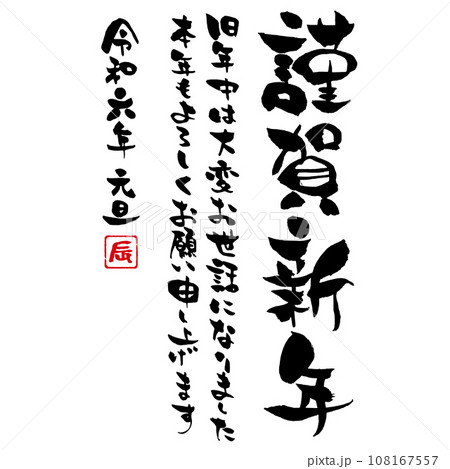 謹賀新年
旧年中は大変お世話になりました
本年もよろしくお願い申し上げます
令和六年 元旦
辰
PIXTA
pixta.jp - 108167557